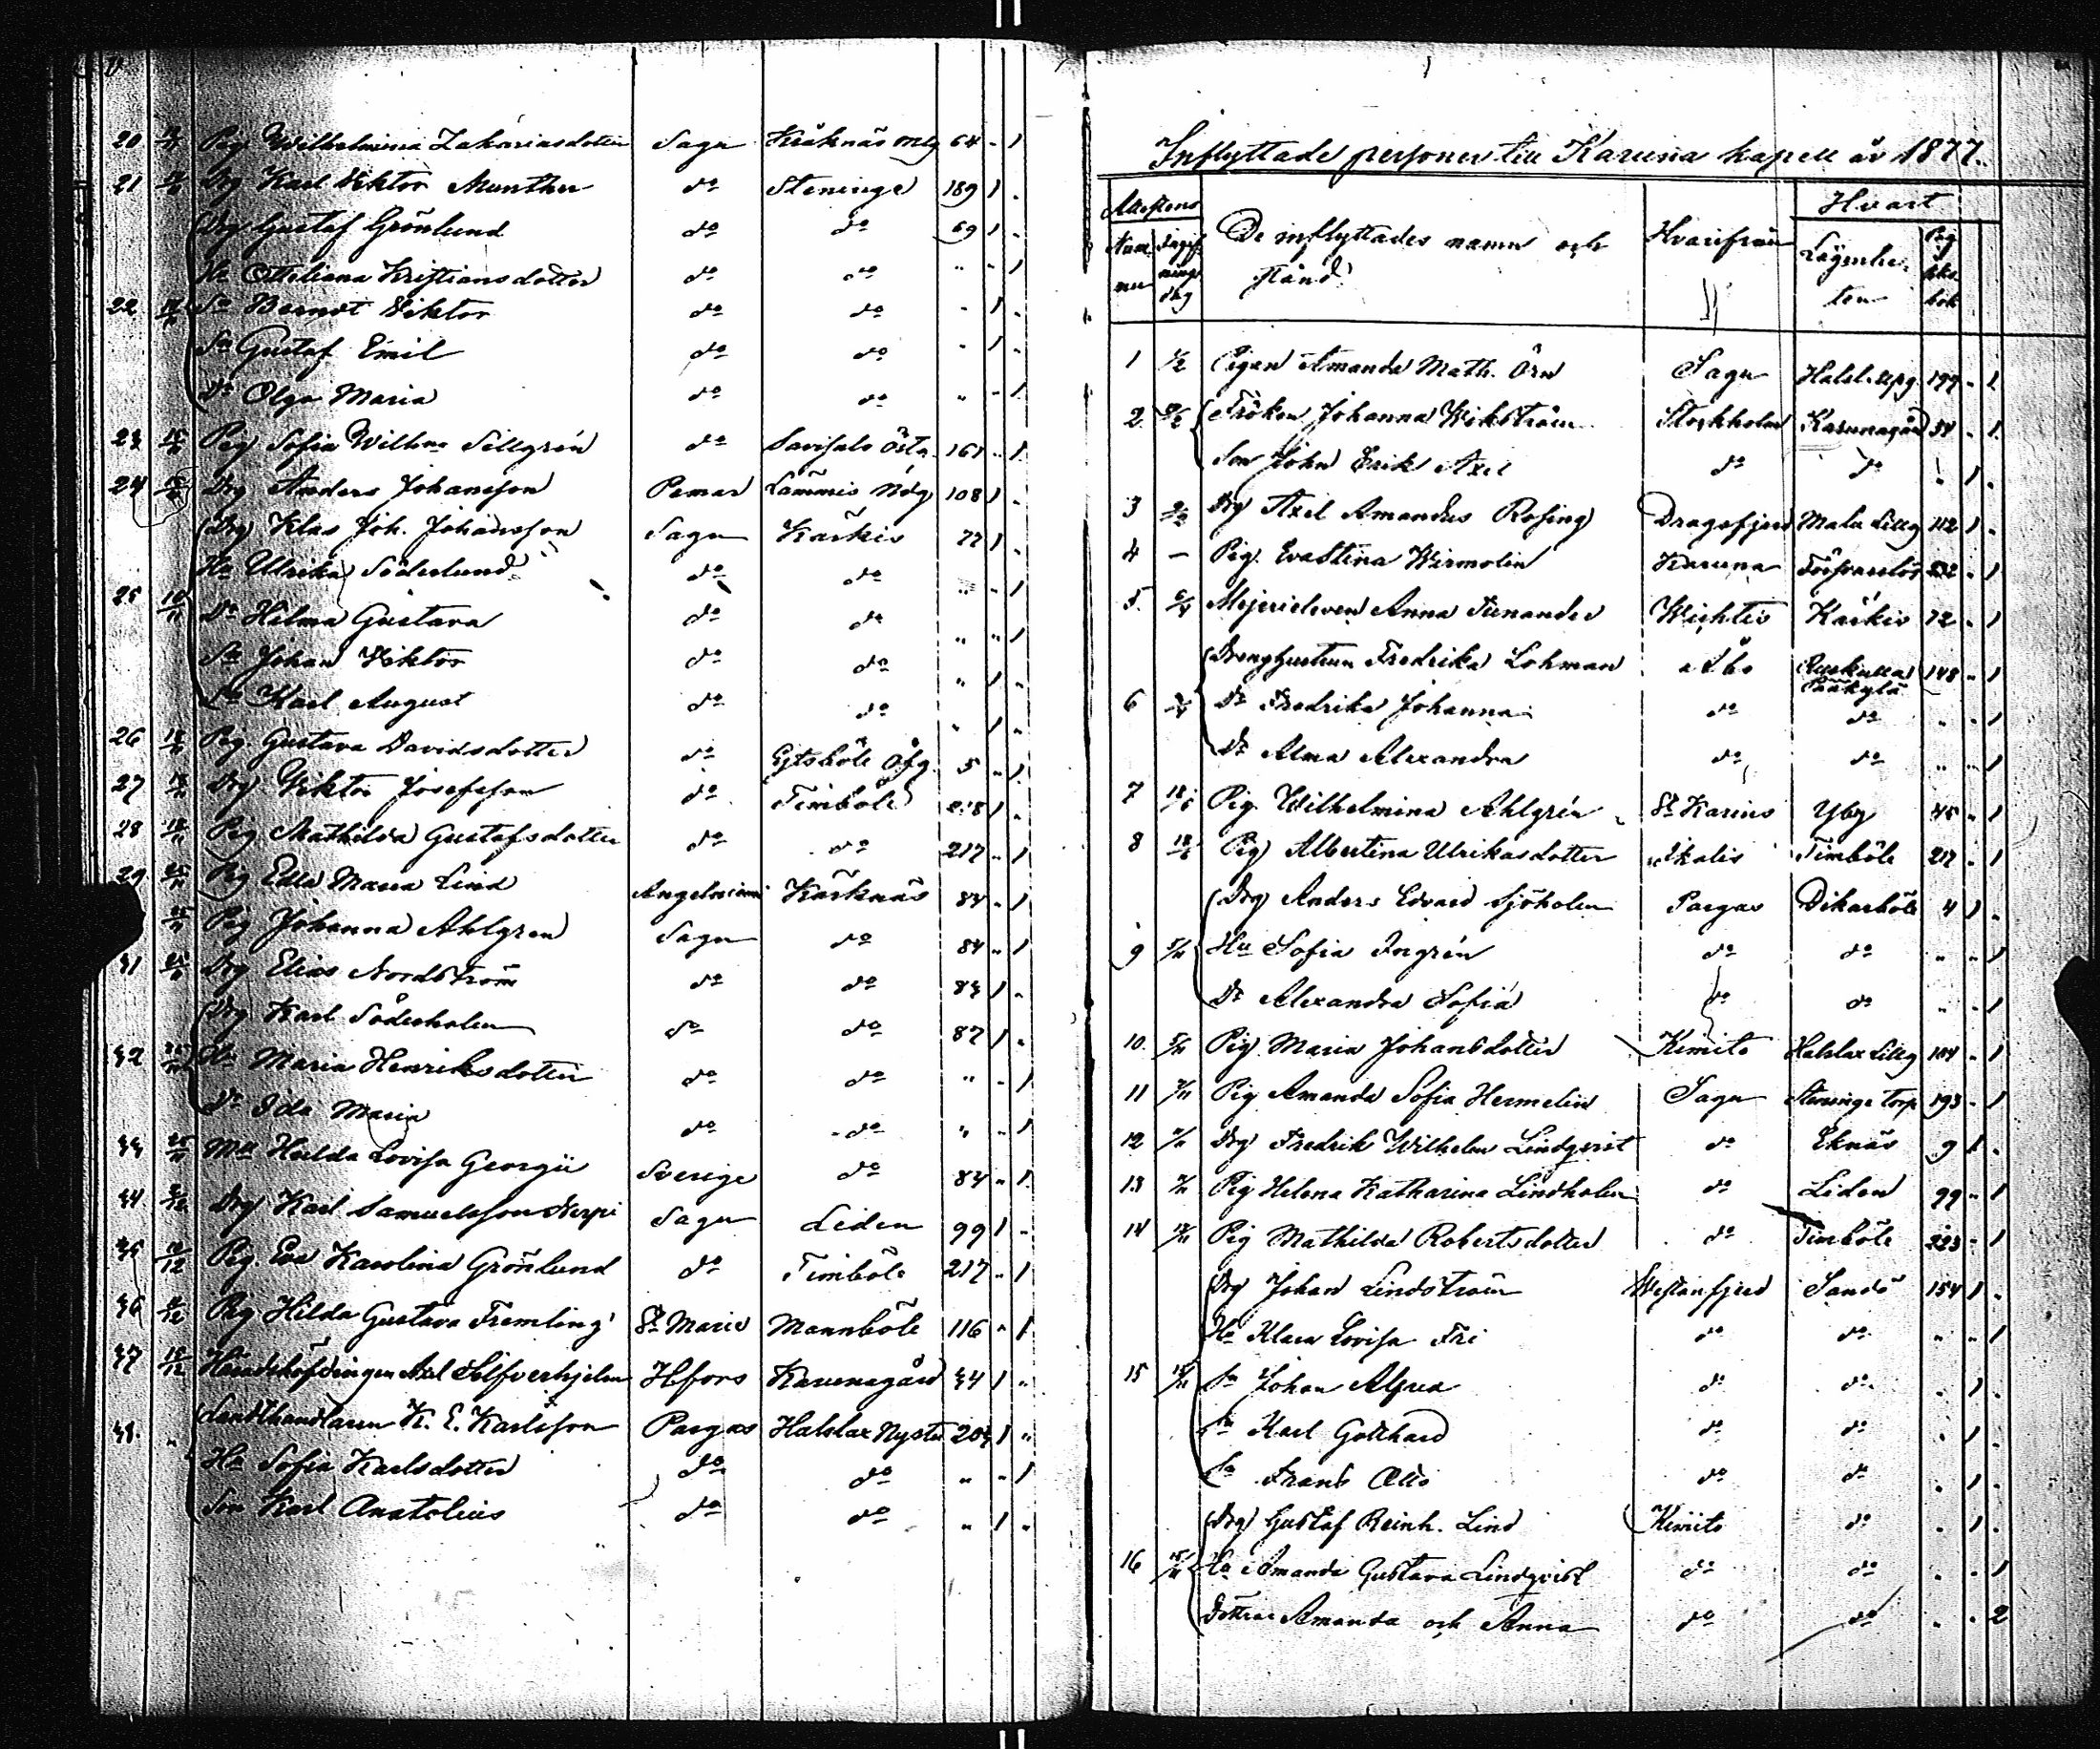 20 Pig Wilhelmina Zakariasdotter Sagu Kråknäs 64 - 1
21 Drg Karl Viktor Munther do Steninge 189 1 -
Drg Gustaf Grönlund do do 69 1 -
Hu Ottiliana Kristiansdotter do do " - 1
22 Sn Berndt Viktor do do - 1 -
Sn Gustaf Emil do do " 1 -
Dr Olga Maria do do " - 1
23 Pig Sofia Wilhna Sillgrén do 161 - 1
24 Drg Anders Johansson Pemar Lammis 108 1 -
Drg Klas Joh. Johansson Sagu Karkis 72 1 -
Hu Ulrika Söderlund do do " - 1
25 Dr Hilma Gustava do do " " 1
Sn Johan Viktor do do " 1 -
Sn Karl August do do " 1 -
26 Pig Gustava Davidsdotter do Gjtsböle 5 - 1
27 Drg Viktor Josefsson do Timböle 218 1 -
28 Pig Mathilda Gustafsdotter do do 217 - 1
29 Pig Edla Maria Lind Angelniemi Karknäs 84 - 1
Pig Johanna Ahlgren Sagu do 84 - 1
31 Drg Elias Nordström do do 84 1 -
Drg Karl Söderholm do do 87 1 -
32 Hu Maria Henriksdotter do do " - 1
Dr Ida Maria do do " - 1
33 Mll Hulda Lovisa Georgii Sverige do 84 - 1
34 Drg Karl Samuelsson Nerpi Sagu Liden 99 1 -
35 Pig. Eva Karolina Grönlund do Timböle 217 - 1
36 Pig Hilda Gustava Fremling St Marie Mannböle 116 " 1
37 Häradshöfdingen Axel Silfverhjelm Hfors Karunagård 34 1 "
38. Landthandlaren K. E. Karlsson Pargas Halslax 204 1 "
Hu Sofia Karlsdotter do do " - 1
Son Karl Anatolius do do " 1 "
Inflyttade personer till Karuna kapell år 1877.
Attestens De inflyttades namn och stånd Hvarifrån Hvart
Num mer Lägenheten Pag
1 1/2 Pigan Amanda Math. Örn Sagu 199 - 1
2 Fröken Johanna Wikström Stockholm Karunagård 34 - 1
Son John Erik Axel do do " 1 -
3 Drg Axel Amandus Rosing Dragsfjerd Mala Lillg 112 1 -
4 - Pig. Eva Stina Wirmolin Karuna 232 - 1
5. Mejerieleven Anna Turnander Wichtis Karkis 72 - 1
Drenghustrun Fredrika Lohman Åbo 148 - 1
6 Dr Fredrika Johanna do do " - 1
Dr Alma Alexandra do do " - 1
7 Pig. Wilhelmina Ahlgrén St Karins Yby 45 - 1
8 Pig Albertina Ulrikasdotter Ikalis Timböle 217 - 1
Drg Anders Edvard Sjöholm Pargas Dikarböle 4 1 -
9 Hu Sofia Ingrén do do " - 1
Dr Alexandra Sofia do do " - 1
10. Pig Maria Johansdotter Kimito Halslax Lillg 104 - 1
11 Pig Amanda Sofia Hermelin Sagu Steninge Torp 193 - 1
12 Drg Fredrik Wilhelm Lindqvist do Eknäs 9 1 -
13 Pig Helena Katharina Lindholm do Liden 99 - 1
14 Pig Mathilda Robertsdotter do Timböle 223 - 1
Drg Johan Lindström Westanfjerd Sandö 154 1 -
Hu Klara Lovisa Fri do do " - 1
15 Sn Johan Alfred do do - 1 -
Sn Karl Gotthard do do - 1 -
Sn Frans Otto do do - 1 -
Drg Gustaf Reinh. Lind Kimito do - 1 -
16 Hu Amanda Gustava Lindqvist do do - - 1
Döttrar Amanda och Anna do do - - 2